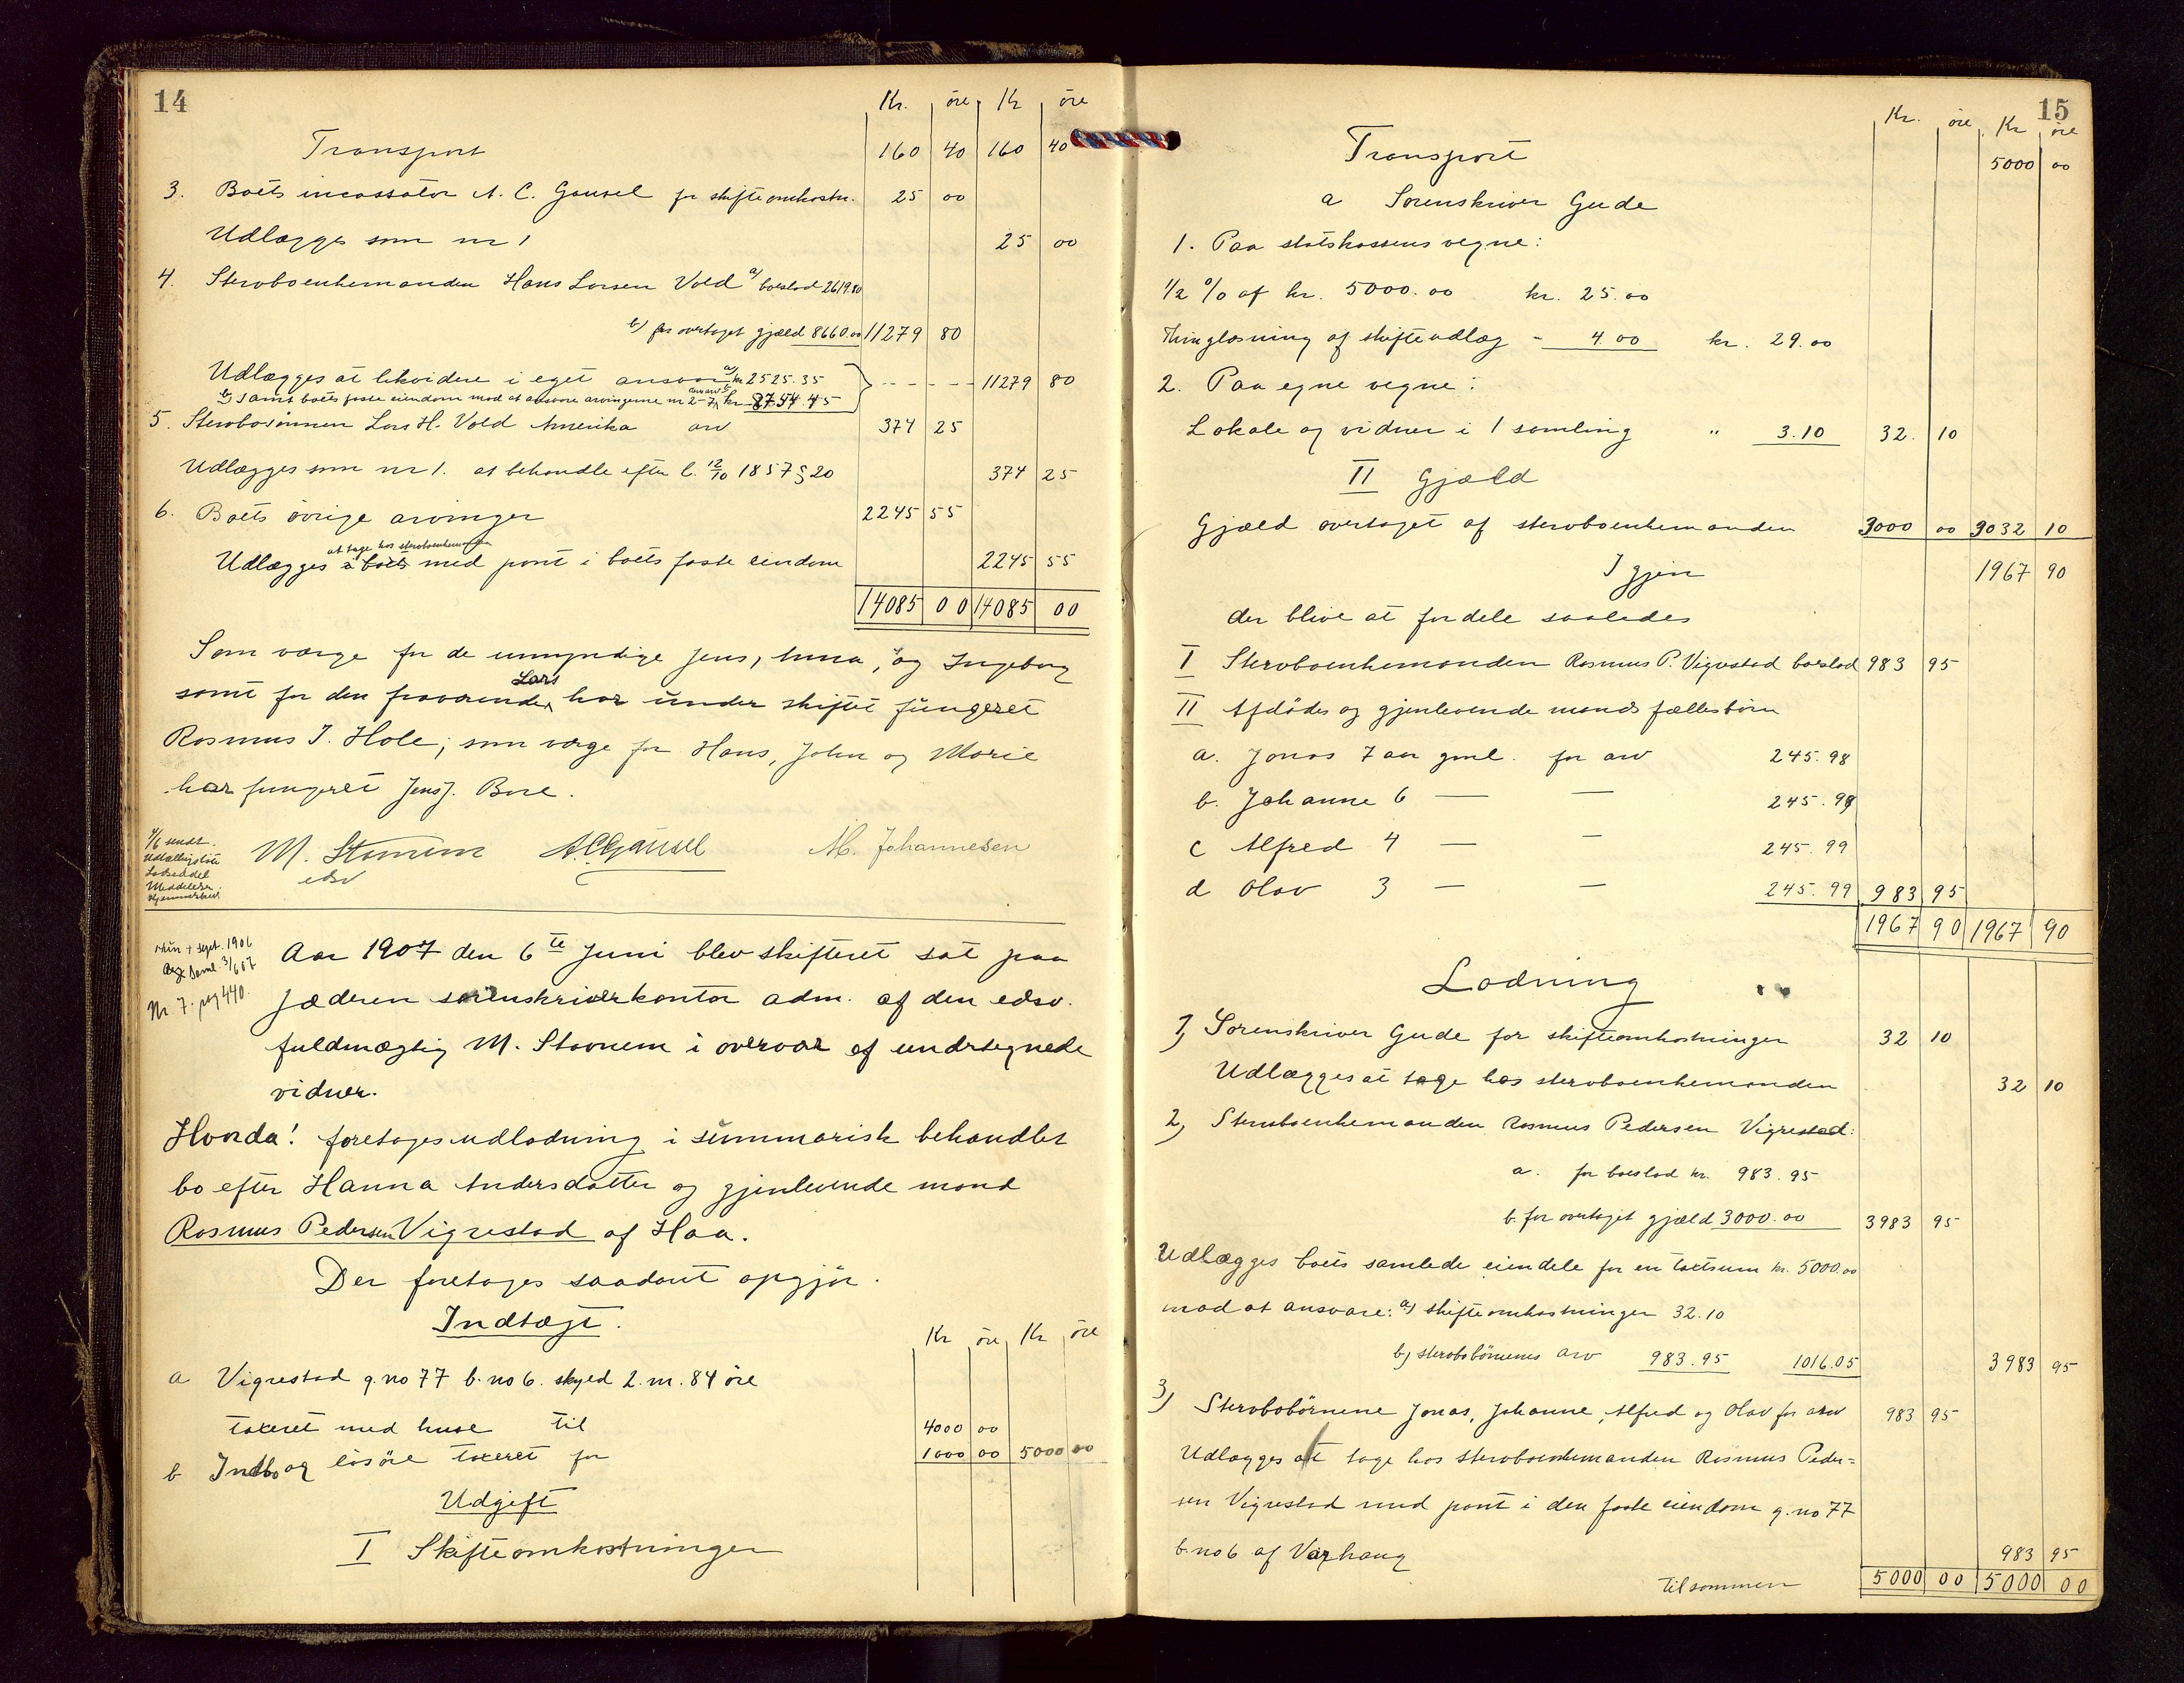 14
Kr. öre Kr öre
Transport 160 40 160 40
3. Boets incassator A. C. Gausel for skifteomkostn. 25 00
Udlægges som nr 1 25 00
4. Stervboenkemanden Hans Larsen Vold a) boeslod 2619.80
b) for overtaget gjæld 8660.00 11279 80
Udlægges at likvidere i eget ansvar a) kr 2525.35 11279 80
b) samt boets faste eiendom mod at ansvare arvingerne nr 2-7 kr 8754.45
5. Stervbosønnen Lars H. Vold Amerika arv 374 25
Udlægges som nr 1. at behandle efter l. 12/10 1857 § 20 374 25
6. Boets övrige arvinger 2245 55
at tage hos stervboenkemanden
Udlægges i boets med pant i boets faste eiendom 2245 55
14085 00 14085 00
Som værge for de umyndige Jens, Anna, og Ingeborg
samt for den fraværende Lars har under skiftet fungeret
Rasmus J. Hole; som værge for Hans, John og Marie
har fungeret Jens J. Bore.
M. Stavnem A.C.Gausel M. Johannesen
edsv
Aar 1907 den 6te Juni blev skifteret sat paa
Jæderen sorenskriverkontor adm. af den edsv.
Nr 7. pag 440.
fuldmægtig M. Stavnem i overvær af undertegnede
vidner.
Hvorda! foretages udlodning i summarisk behandlet
bo efter Hanna Andersdatter og gjenlevende mand
Rasmus Pedersen Vigrestad af Haa.
Der foretages saadant opgjör.
Indtægt.
Kr öre Kr öre
a Vigrestad g. no 77 b. no 6. skyld 2. m. 84 öre
taxeret med huse til 4000 00
b Indbo og lösöre taxeret for 1000 00 5000 00
Udgift
I Skifteomkostninger
15
Kr. öre Kr öre
Transport 5000 00
a Sorenskriver Gude
1. Paa statskassens vegne:
1/2 % af kr. 5000.00 kr. 25.00
Thinglæsning af skifteudlæg - 4.00 kr. 29.00
2. Paa egne vegne:
Lokale og vidner i 1 samling " 3.10 32. 10
II Gjæld
Gjæld overtaget af stervboenkemanden 3000 00 3032 10
Igjen 1967 90
der blive at fordele saaledes
I Stervboenkemanden Rasmus P. Vigrestad boeslod 983 95
II Afdødes og gjenlevende mands fællesbörn
a. Jonas 7 aar gml. for arv 245.98
b. Johanne 6 — — 245.99
c Alfred 4 — — 245.99
d Olav 3 — — 245.99 983 95
1967 90 1967 90
Lodning
1) Sorenskriver Gude for skifteomkostninger 32 10
Udlægges at tage hos stervboenkemanden 32 10
2) Stervboenkemanden Rasmus Pedersen Vigrestad:
a. for boeslod kr. 983.95
b. for overtaget gjæld 3000.00 3983 95
Udlægges boets samlede eiendele for en taxtsum kr. 5000.00
mod at ansvare: a) skifteomkostninger 32.10
b) stervbobörnenes arv 983.95 1016.05 3983 95
3) Stervbobørnene Jonas, Johanne, Alfred og Olav for arv 983 95
Udlægges at tage hos stervboenkemanden Rasmus Peder=
sen Vigrestad med pant i den faste eiendom g. no 77
b. no 6 af Varhaug 983 95
tilsammen 5000 00 5000 00